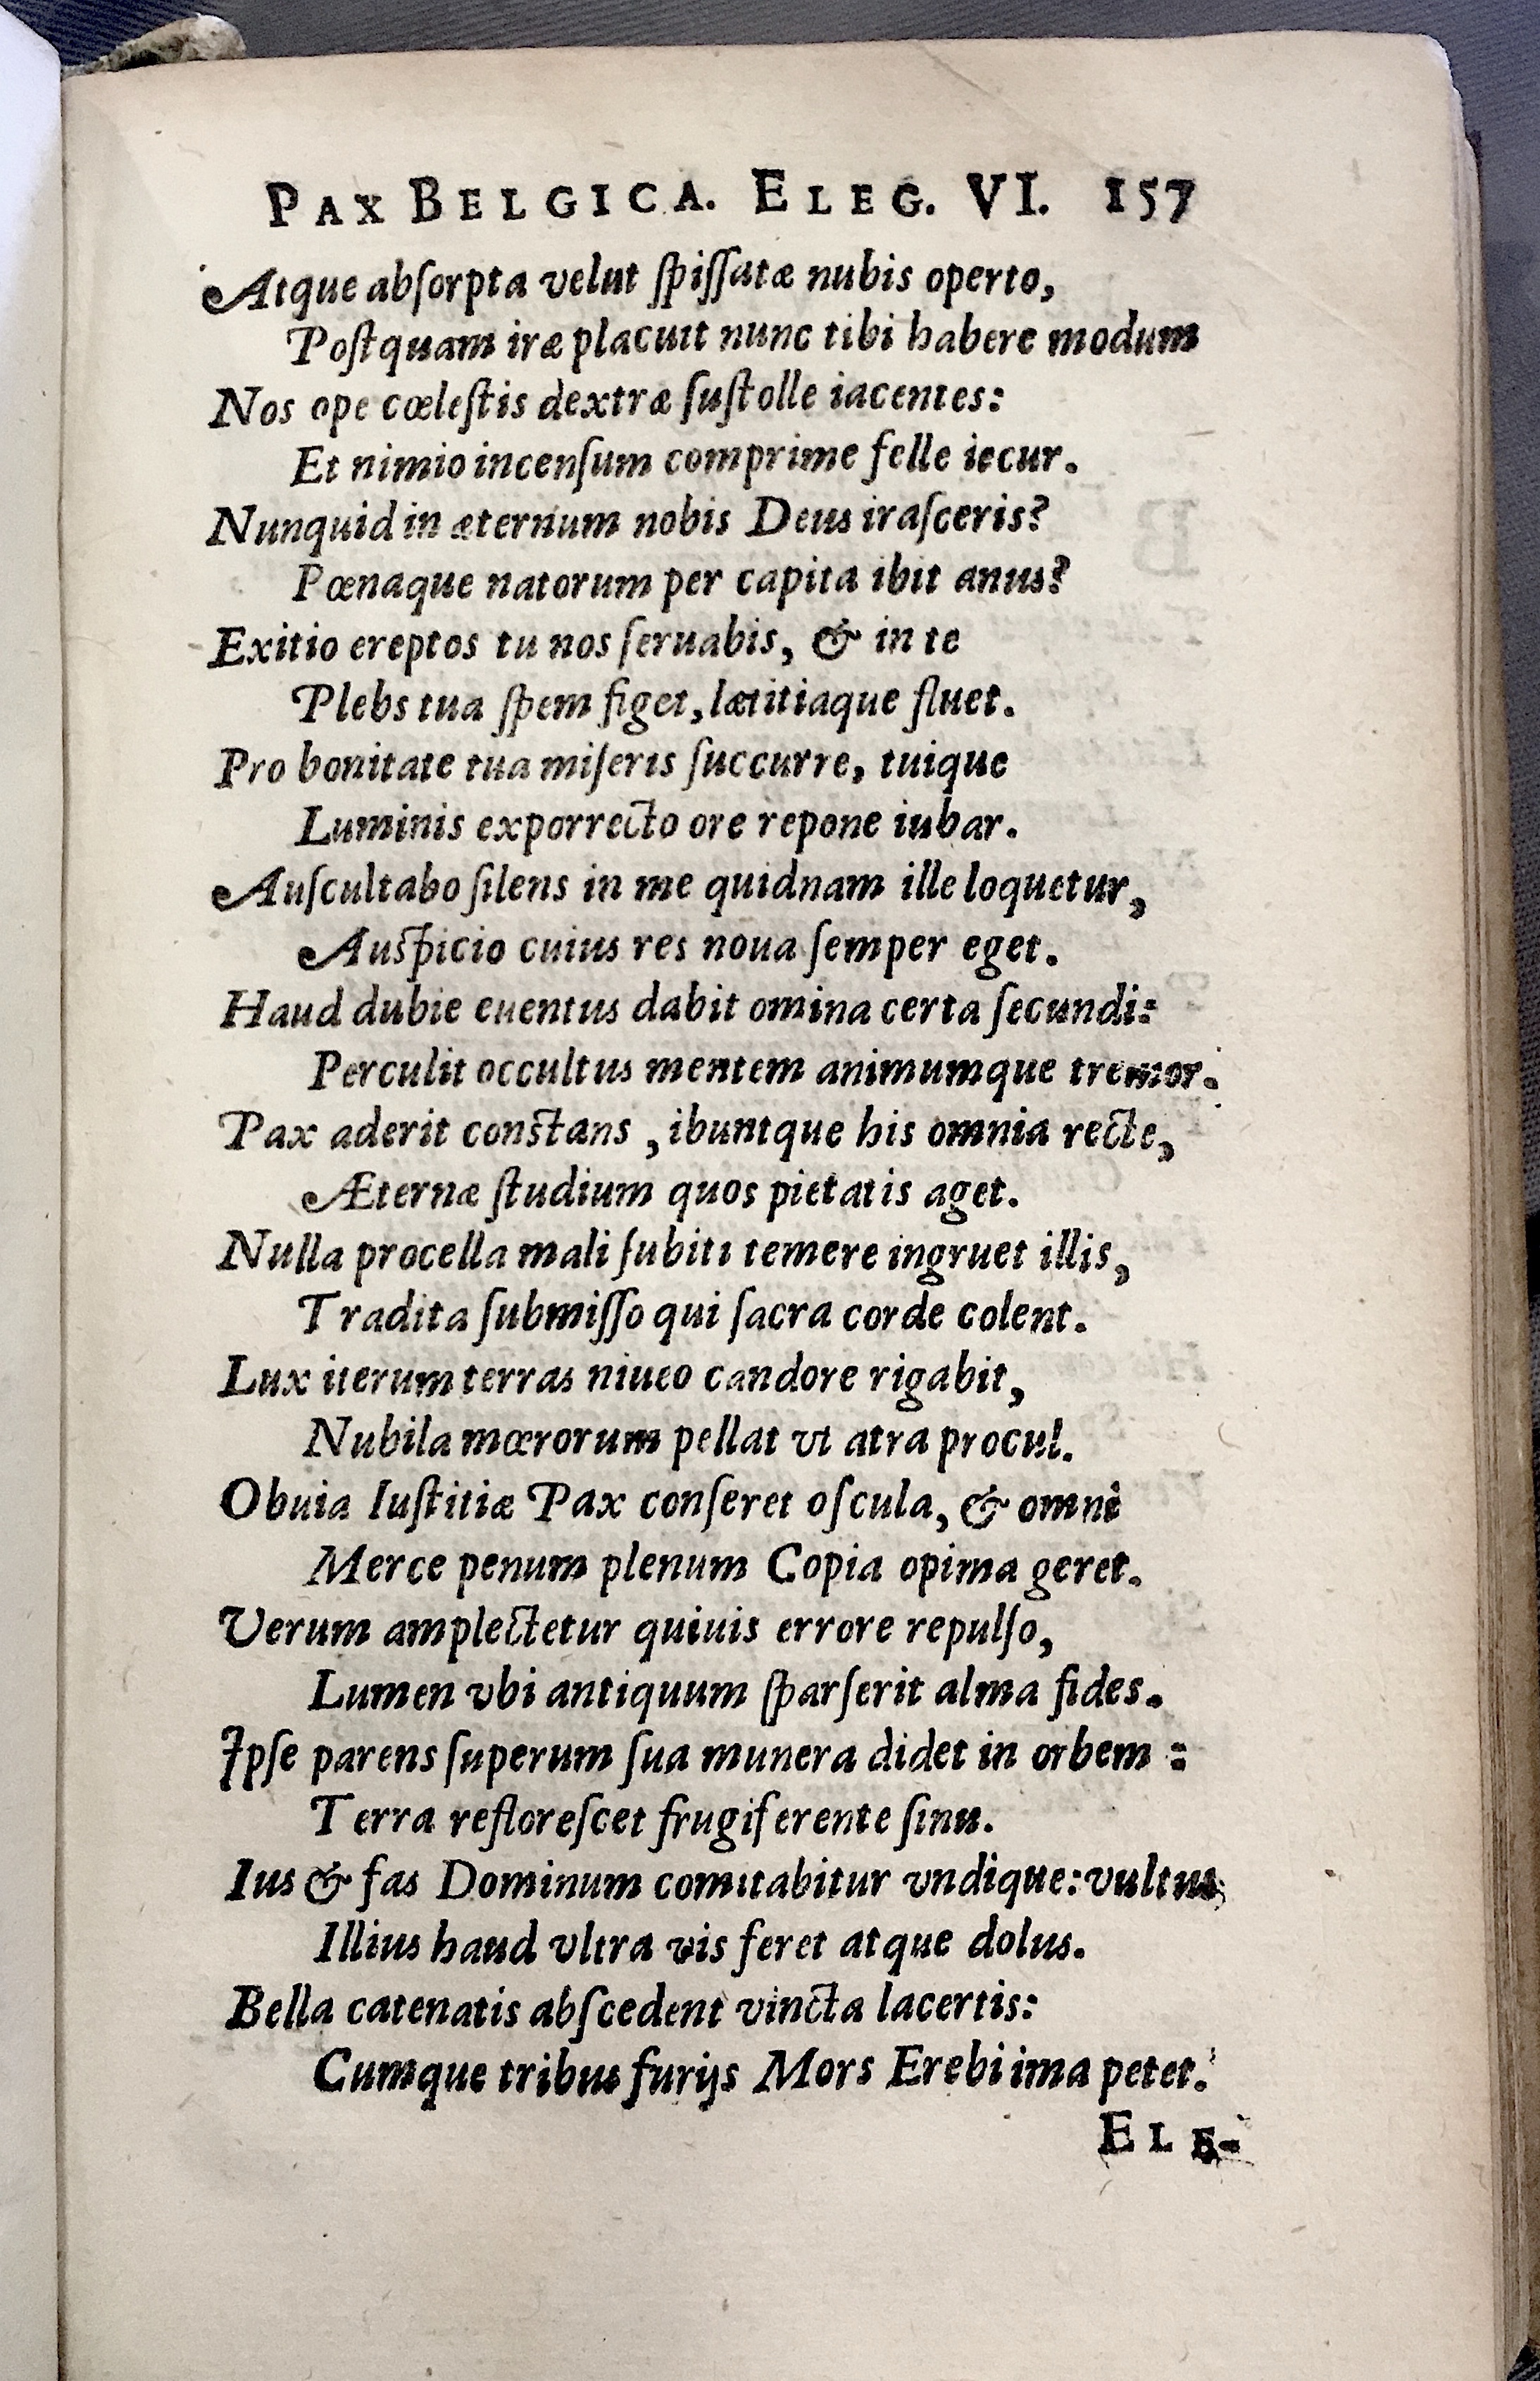 PAX BELGICA. ELEG. VI. 157
Atque abſorpta velut ſpiſſatæ nubis operto,
Poſtquam iræ placuit nunc tibi habere modum
Nos ope cœleſtis dextræ ſuſtolle iacentes:
Et nimio incenſum comprime felle iecur.
Nunquid in æternum nobis Deus iraſceris?
Pœnaque natorum per capita ibit anus?
Exitio ereptos tu nos ſeruabis, & in te
Plebs tua ſpem figet, lætitiaque fluet.
Pro bonitate tua miſeris ſuccurre, tuique
Luminis exporrecto ore repone iubar.
Auſcultabo ſilens in me quidnam ille loquetur,
Auſpicio cuius res noua ſemper eget.
Haud dubie euentus dabit omina certa ſecundi:
Perculit occultus mentem animumque tremor.
Pax aderit conſtans, ibuntque his omnia recte,
Æternæ ſtudium quos pietatis aget.
Nulla procella mali ſubiti temere ingruet illis,
Tradita ſubmiſſo qui ſacra corde colent.
Lux iterum terras niueo candore rigabit,
Nubila mœrorum pellat vt atra procul.
Obuia Iuſtitiæ Pax conſeret oſcula, & omni
Merce penum plenum Copia opima geret.
Verum amplectetur quiuis errore repulſo,
Lumen vbi antiquum ſparſerit alma fides.
Ipſe parens ſuperum ſua munera didet in orbem:
Terra refloreſcet frugiferente ſinu.
Ius & fas Dominum comitabitur vndique: vultus
Illius haud vltra vis feret atque dolus.
Bella catenatis abſcedent vincta lacertis:
Cumque tribus furijs Mors Erebi ima petet.
ELE-